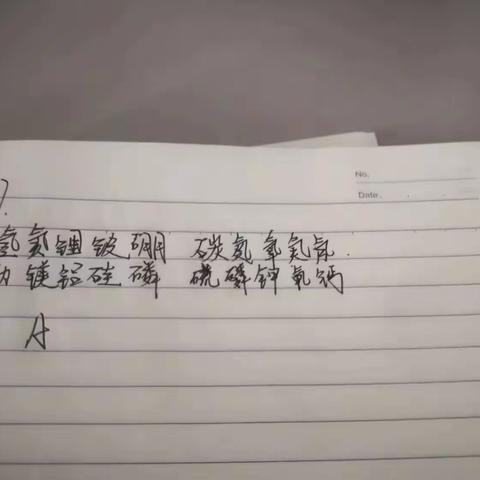 No.
Date.
氢氦锂铍硼 碳氮氧氟氖.
钠镁铝硅磷 硫磷钾氧钙
A